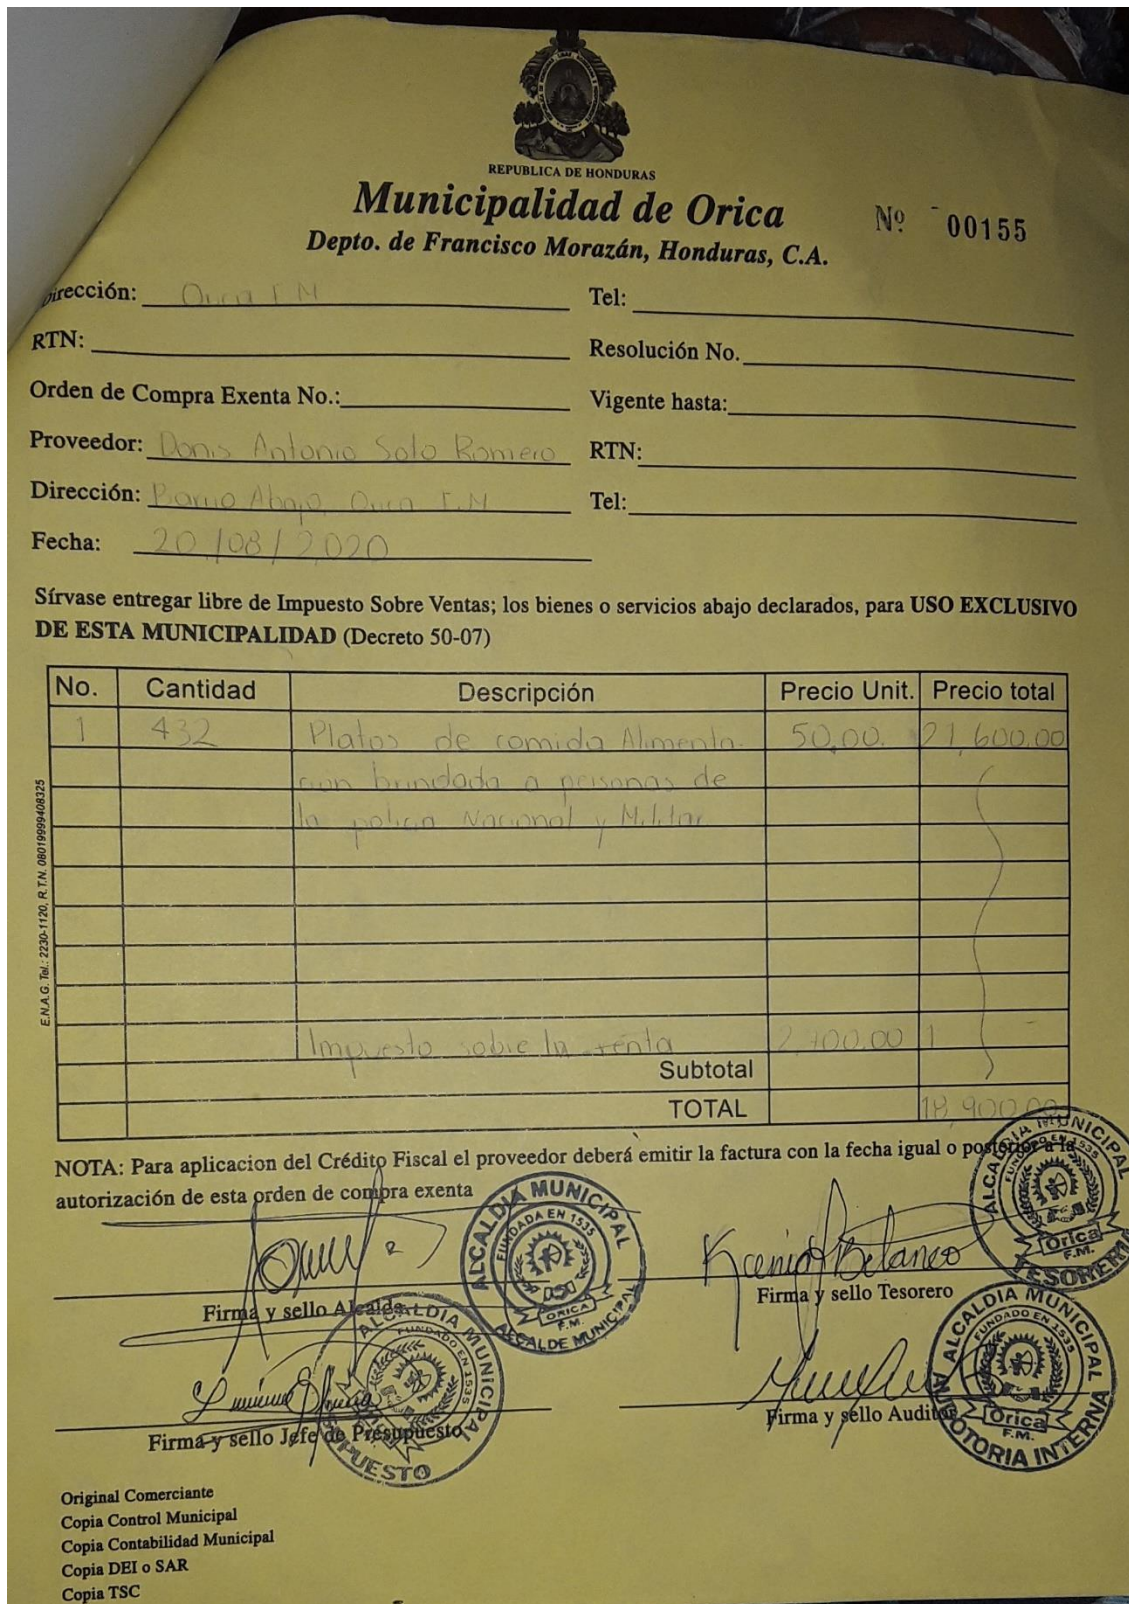 REPUBLICA DE HONDURAS
Municipalidad de Orica
Nº 00155
Depto. de Francisco Morazán, Honduras, C.A.
Dirección: Orica F.M
Tel:
RTN:
Resolución No.
Orden de Compra Exenta No.:
Vigente hasta:
Proveedor: Donis Antonio Soto Romero
RTN:
Dirección: Barrio Abajo, Orica F.M
Tel:
Fecha: 20/08/2020
Sírvase entregar libre de Impuesto Sobre Ventas; los bienes o servicios abajo declarados, para USO EXCLUSIVO
DE ESTA MUNICIPALIDAD (Decreto 50-07)
No. Cantidad Descripción Precio Unit. Precio total
1 432 Platos de comida Alimenta- 50.00. 21,600.00
ción brindada a personas de
la policia Nacional y Militar
Impuesto sobre la renta
Subtotal
TOTAL 18,900.00
E.N.A.G. Tel.: 2230-1120, R.T.N. 08019999408325
NOTA: Para aplicacion del Crédito Fiscal el proveedor deberá emitir la factura con la fecha igual o posterior a la
autorización de esta orden de compra exenta
ALCALDIA MUNICIPAL
FUNDADA EN 1535
ORICA
F.M.
ALCALDE MUNICIPAL
Firma y sello Alcalde
ALCALDIA MUNICIPAL
FUNDADO EN 1535
Orica
F.M.
TESORERIA
Firma y sello Tesorero
ALCALDIA MUNICIPAL
FUNDADO EN 1535
Firma y sello Jefe de Presupuesto
ALCALDIA MUNICIPAL
FUNDADO EN 1535
Orica
F.M.
AUDITORIA INTERNA
Firma y sello Auditor
Original Comerciante
Copia Control Municipal
Copia Contabilidad Municipal
Copia DEI o SAR
Copia TSC